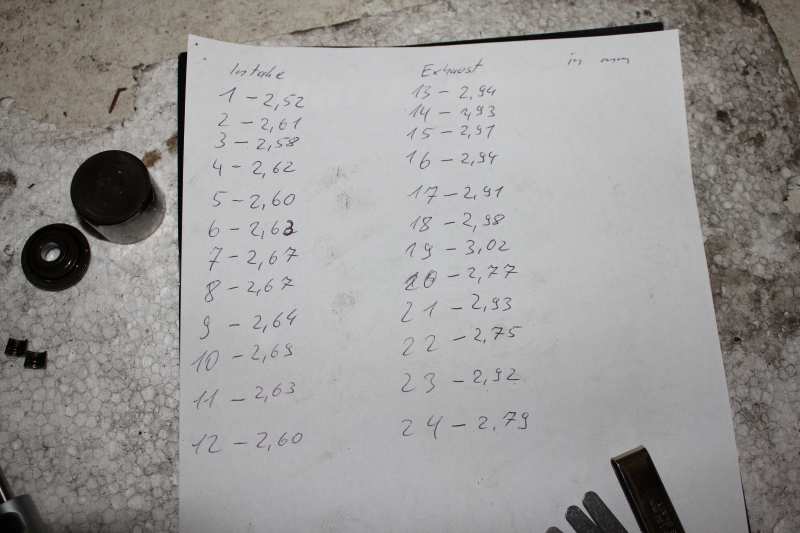 Intake Exhaust in mm
1 - 2,52 13 - 2,94
2 - 2,61 14 - 2,93
3 - 2,58 15 - 2,91
4 - 2,62 16 - 2,94
5 - 2,60 17 - 2,91
6 - 2,63 18 - 2,98
7 - 2,67 19 - 3,02
8 - 2,67 20 - 2,77
9 - 2,64 21 - 2,93
10 - 2,69 22 - 2,75
11 - 2,63 23 - 2,92
12 - 2,60 24 - 2,79